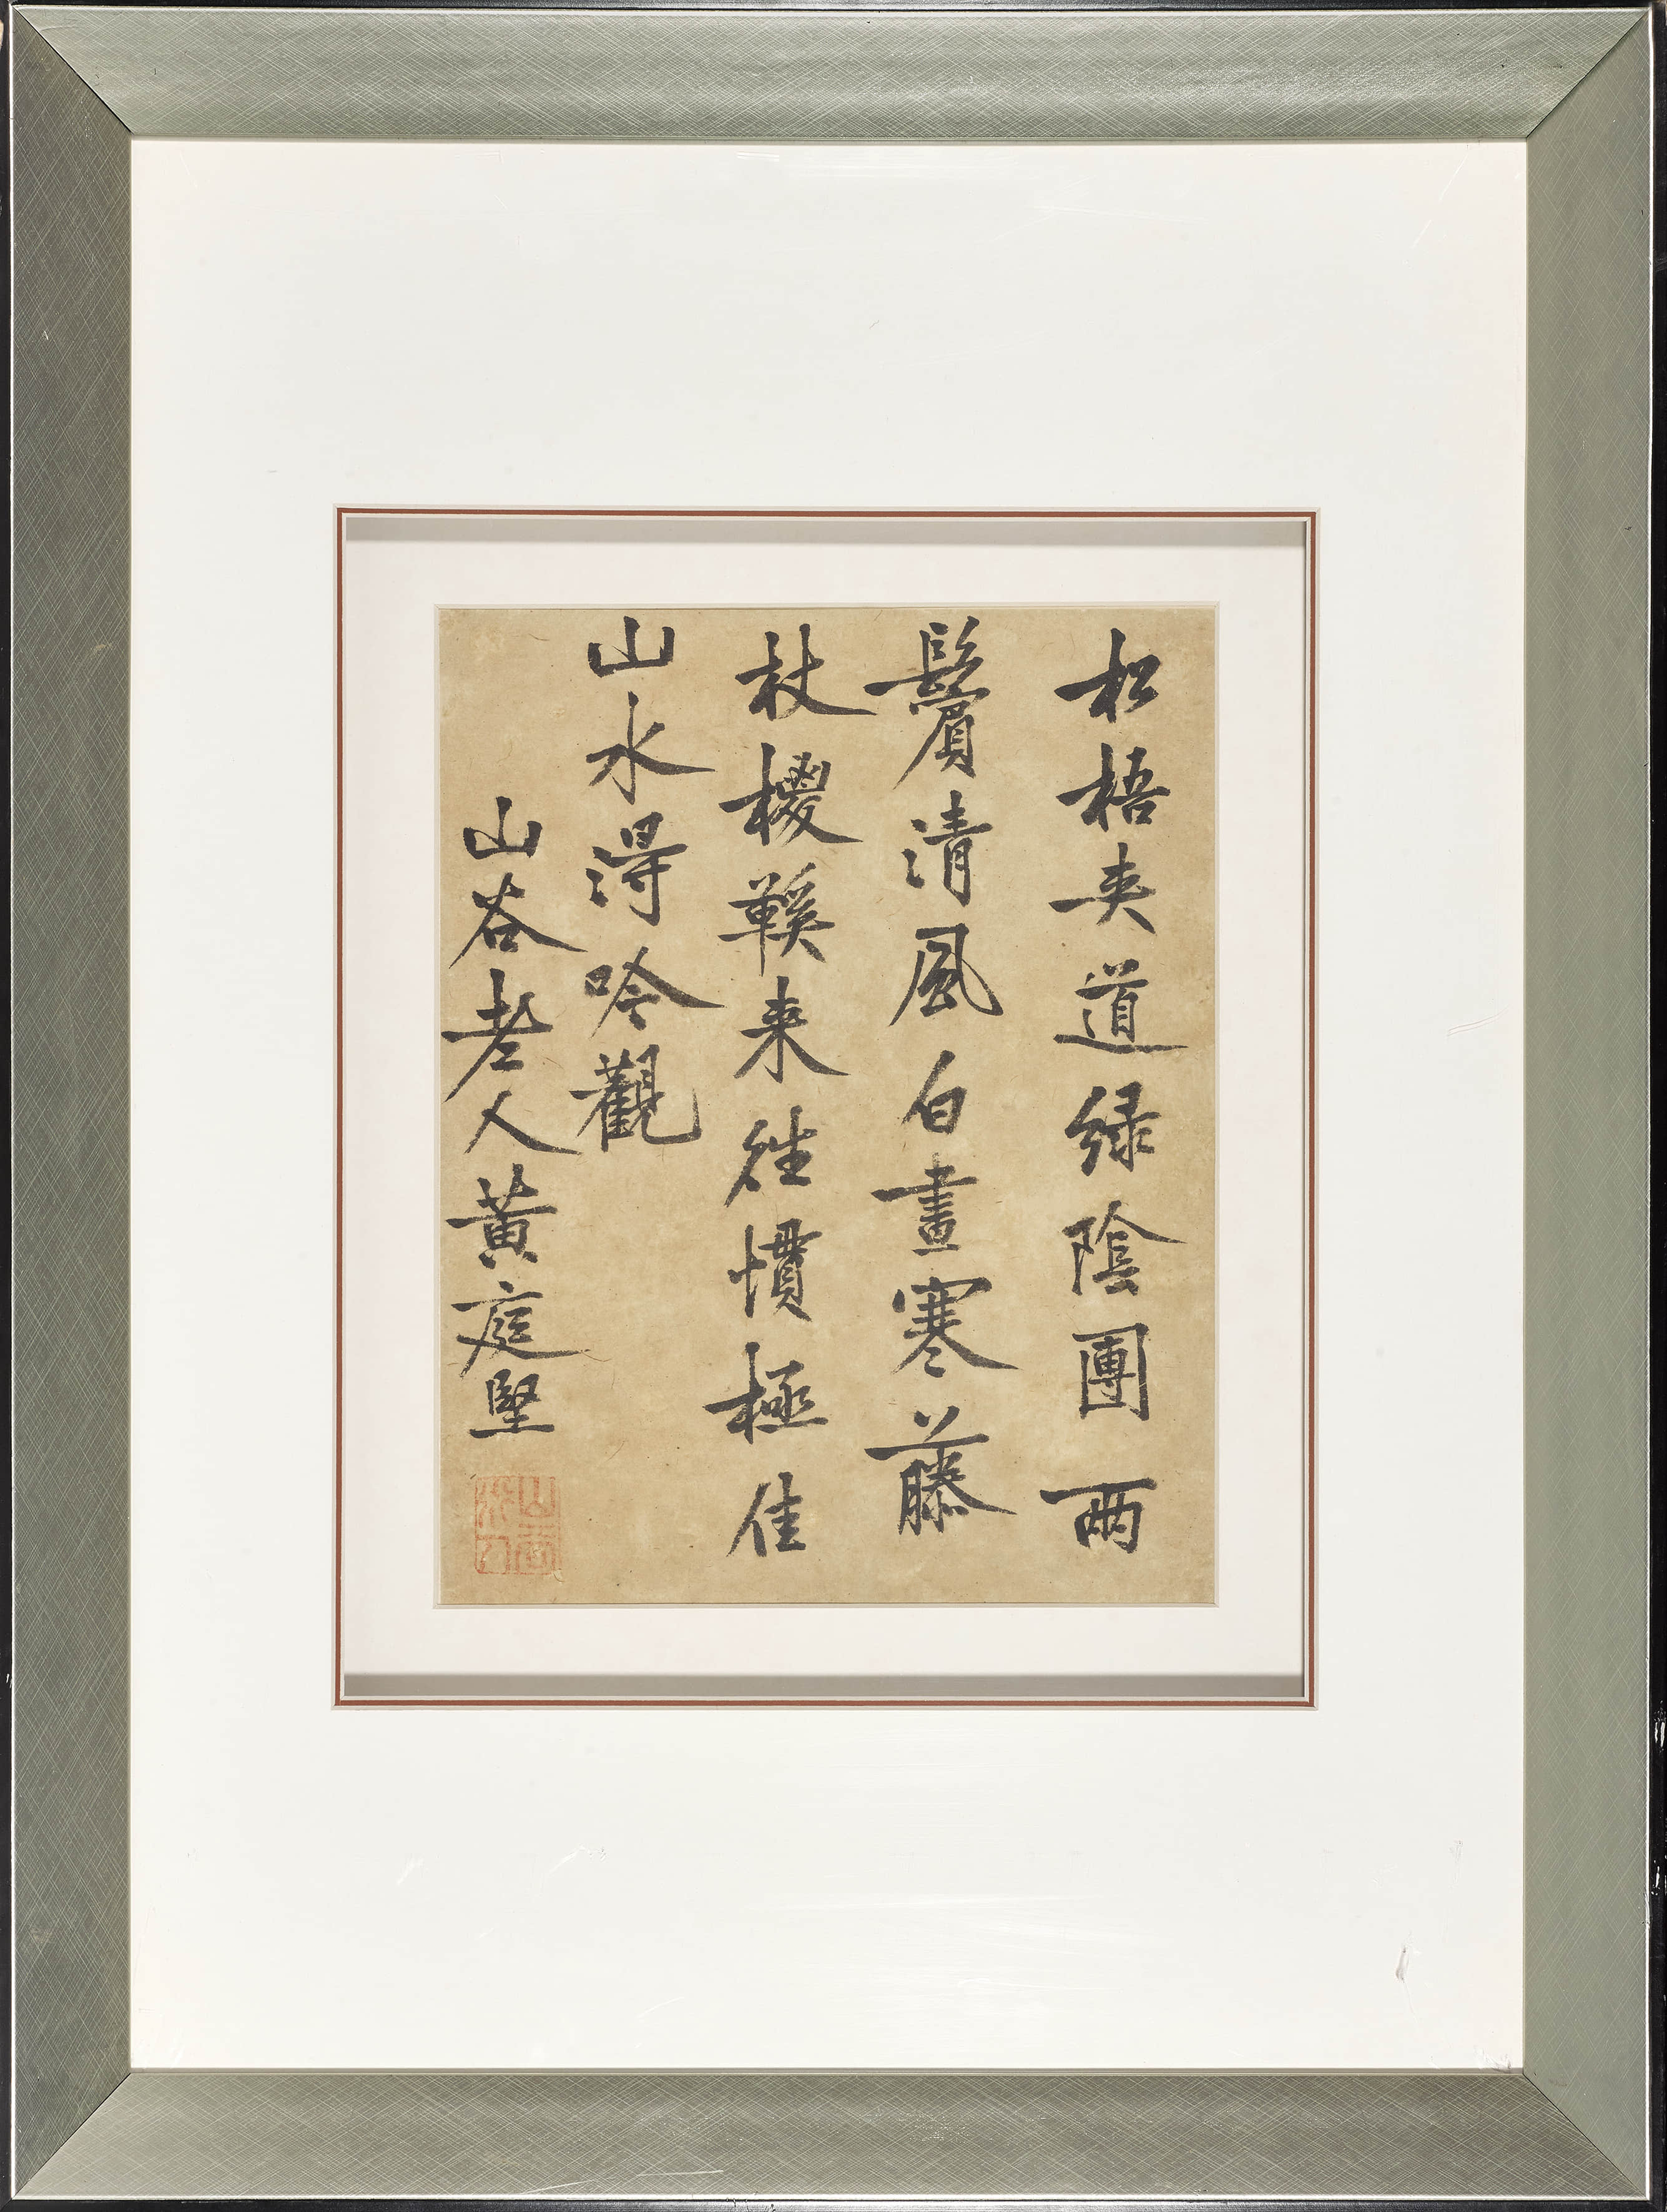 松梧夾道緑陰團兩
鬢清風白晝寒藤
杖椶鞵来往慣極佳
山水得吟觀
山谷老人黄庭堅